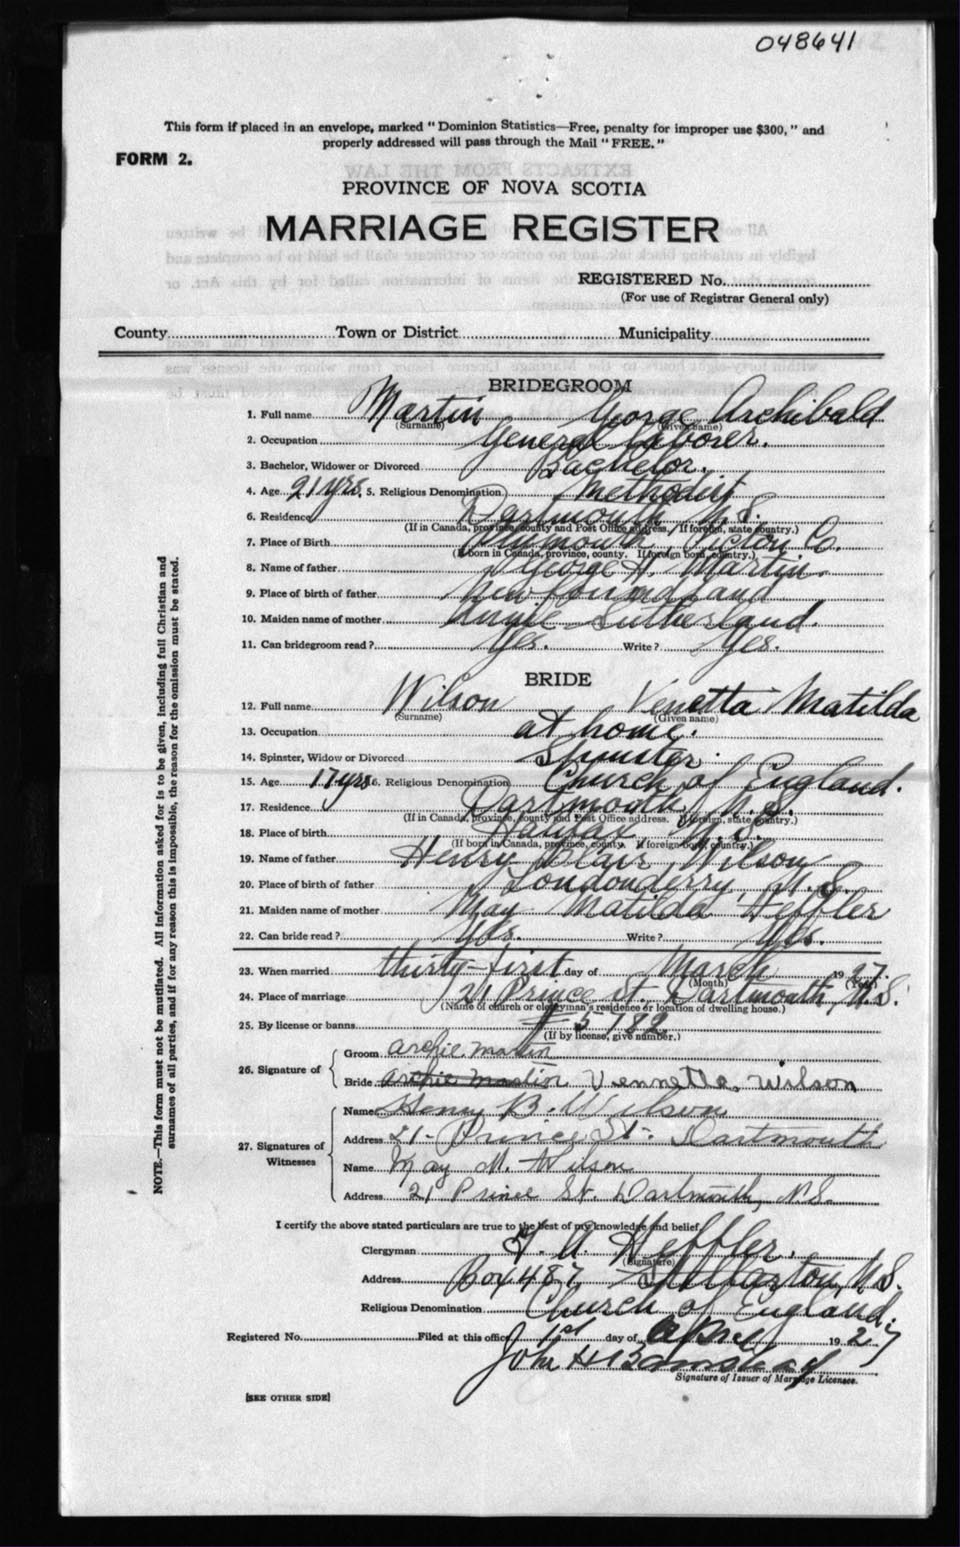 048641
This form if placed in an envelope, marked "Dominion Statistics—Free, penalty for improper use $300," and
properly addressed will pass through the Mail "FREE."
FORM 2.
PROVINCE OF NOVA SCOTIA
MARRIAGE REGISTER
REGISTERED No.
(For use of Registrar General only)
County Town or District Municipality
BRIDEGROOM
1. Full name Martin George Archibald
(Surname) (Given name)
2. Occupation General Laborer.
3. Bachelor, Widower or Divorced Bachelor.
4. Age 21 yrs. 5. Religious Denomination Methodist
6. Residence Dartmouth N.S.
(If in Canada, province, county and Post Office address. If foreign, state country.)
7. Place of Birth Plymouth, Pictou Co.
(If born in Canada, province, county. If foreign born, country.)
8. Name of father George H. Martin.
9. Place of birth of father Newfoundland
10. Maiden name of mother Angie Sutherland.
11. Can bridegroom read? Yes. Write? Yes.
BRIDE
12. Full name Wilson Venetta Matilda
(Surname) (Given name)
13. Occupation at home.
14. Spinster, Widow or Divorced Spinster.
15. Age 17 yrs 16. Religious Denomination Church of England.
17. Residence Dartmouth, N.S.
(If in Canada, province, county and Post Office address. If foreign, state country.)
18. Place of birth Halifax N.S.
(If born in Canada, province, county. If foreign born, country.)
19. Name of father Henry Blair Wilson
20. Place of birth of father Londonderry N.S.
21. Maiden name of mother May Matilda Heffler
22. Can bride read? Yes. Write? Yes.
23. When married thirty-first day of March 1927.
(Month) (Year)
24. Place of marriage 21 Prince St. Dartmouth, N.S.
(Name of church or clergyman's residence or location of dwelling house.)
25. By license or banns # 5782
(If by license, give number.)
26. Signature of Groom Archie Martin
Bride Archie Martin Vennetta Wilson
27. Signatures of Witnesses Name Henry B. Wilson
Address 21- Prince St- Dartmouth
Name May M. Wilson
Address 21 Prince St. Dartmouth, N.S.
I certify the above stated particulars are true to the best of my knowledge and belief.
Clergyman Heffler.
(Signature)
Address Box 487 Stellarton, N.S.
Religious Denomination Church of England.
Registered No. Filed at this office 1st day of April 1927
John H
Signature of Issuer of Marriage Licenses.
[SEE OTHER SIDE]
NOTE.—This form must not be mutilated. All information asked for is to be given, including full Christian and
surnames of all parties, and if for any reason this is impossible, the reason for the omission must be stated.